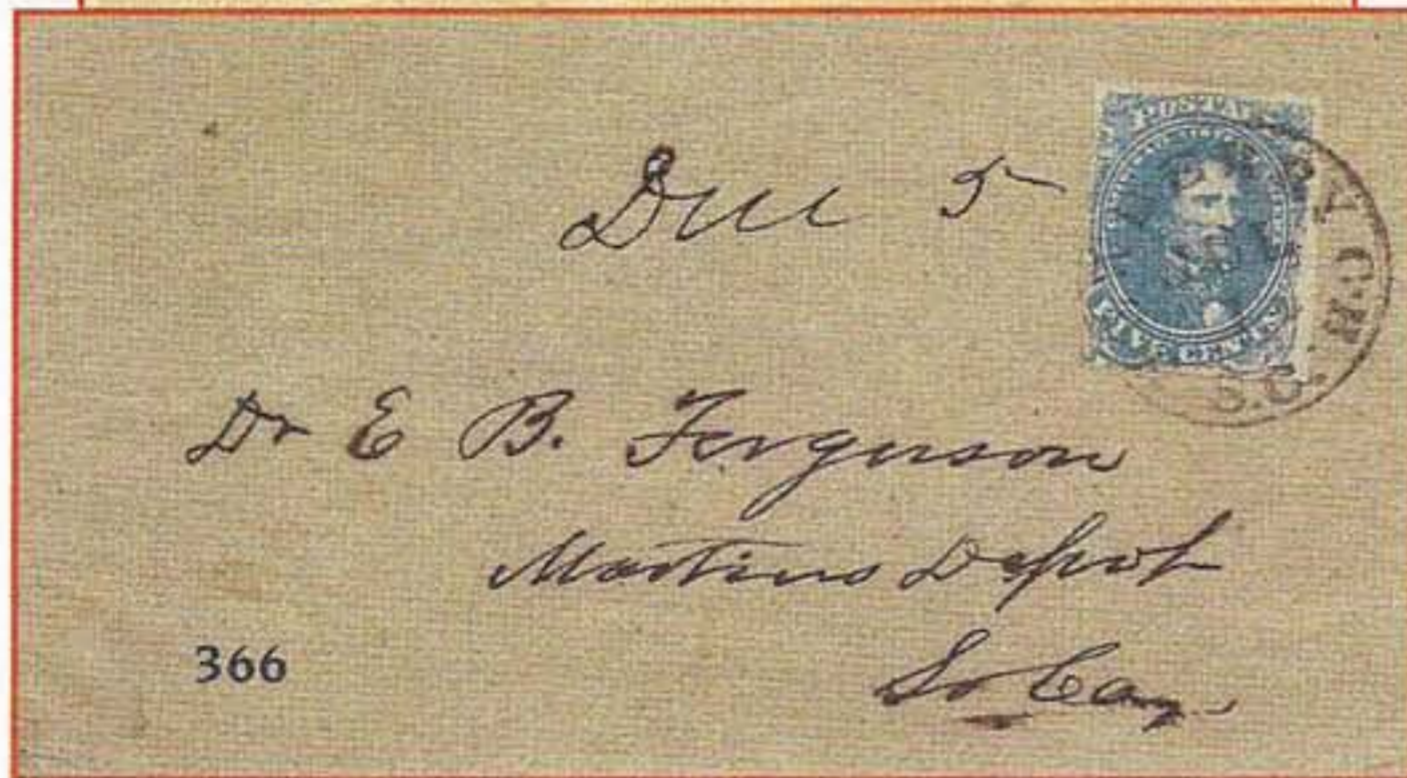 Due 5
POSTAGE
FIVE CENTS
Y C.H.
S.C.
Dr E B. Ferguson
Martins Depot
So Ca
366